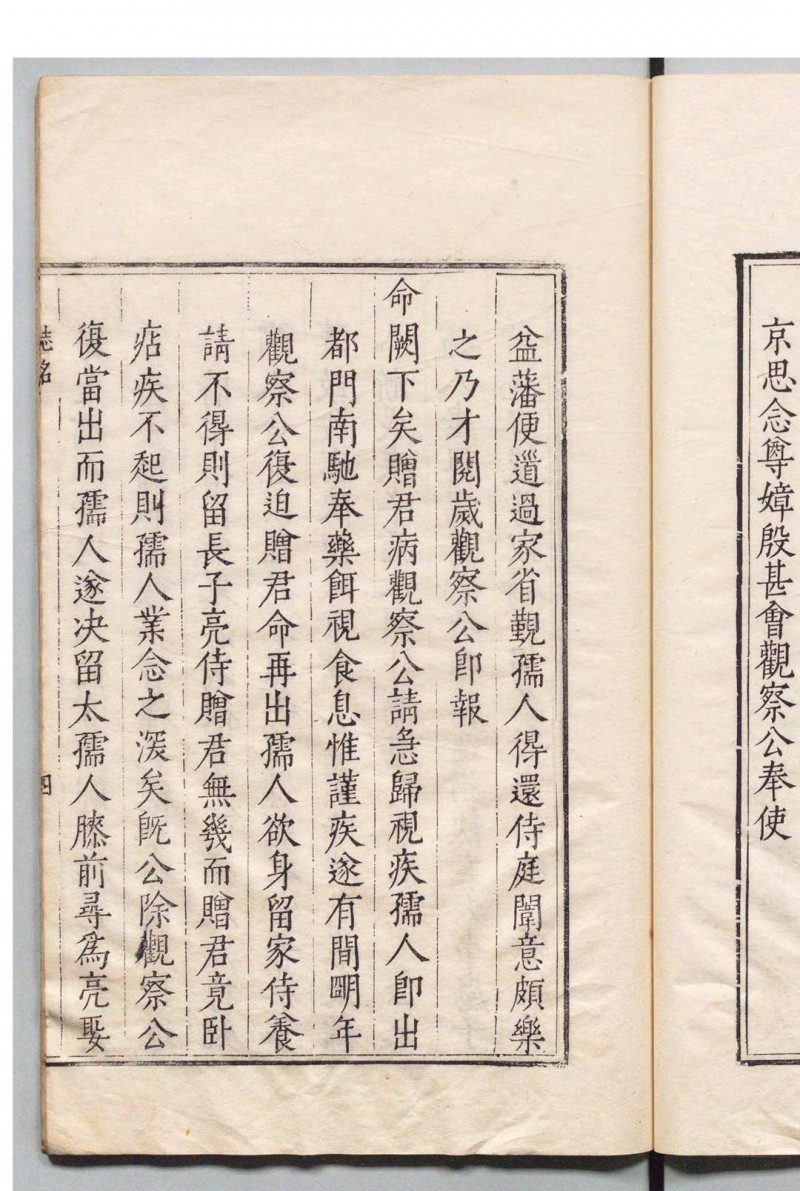 京思念尊嫜殷甚會觀察公奉使
益藩便道過家省覲孺人得還侍庭闈意頗樂
之乃才閱歲觀察公卽報
命闕下矣贈君病觀察公請急歸視疾孺人卽出
都門南馳奉藥餌視食息惟謹疾遂有間明年
觀察公復迫贈君命再出孺人欲身留家侍養
請不得則留長子亮侍贈君無幾而贈君竟卧
痁疾不起則孺人業念之深矣旣公除觀察公
復當出而孺人遂决留太孺人膝前尋爲亮娶
誌銘
四